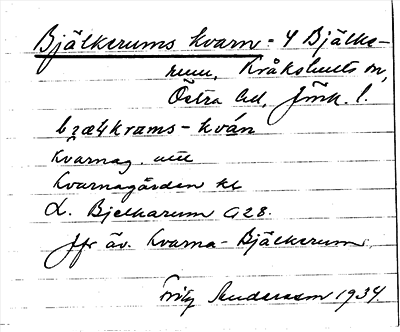 Bjälkerums kvarn - 4 Bjälke-
rum, Kråkshults sn,
Östra hd, Jönk. l.
bzælkrams - kván
Kvarnag. att
Kvarnagården kl
L. Bjelkarum a 28.
Jfr äv. Kvarna-Bjälkerum.
Andersson 1934